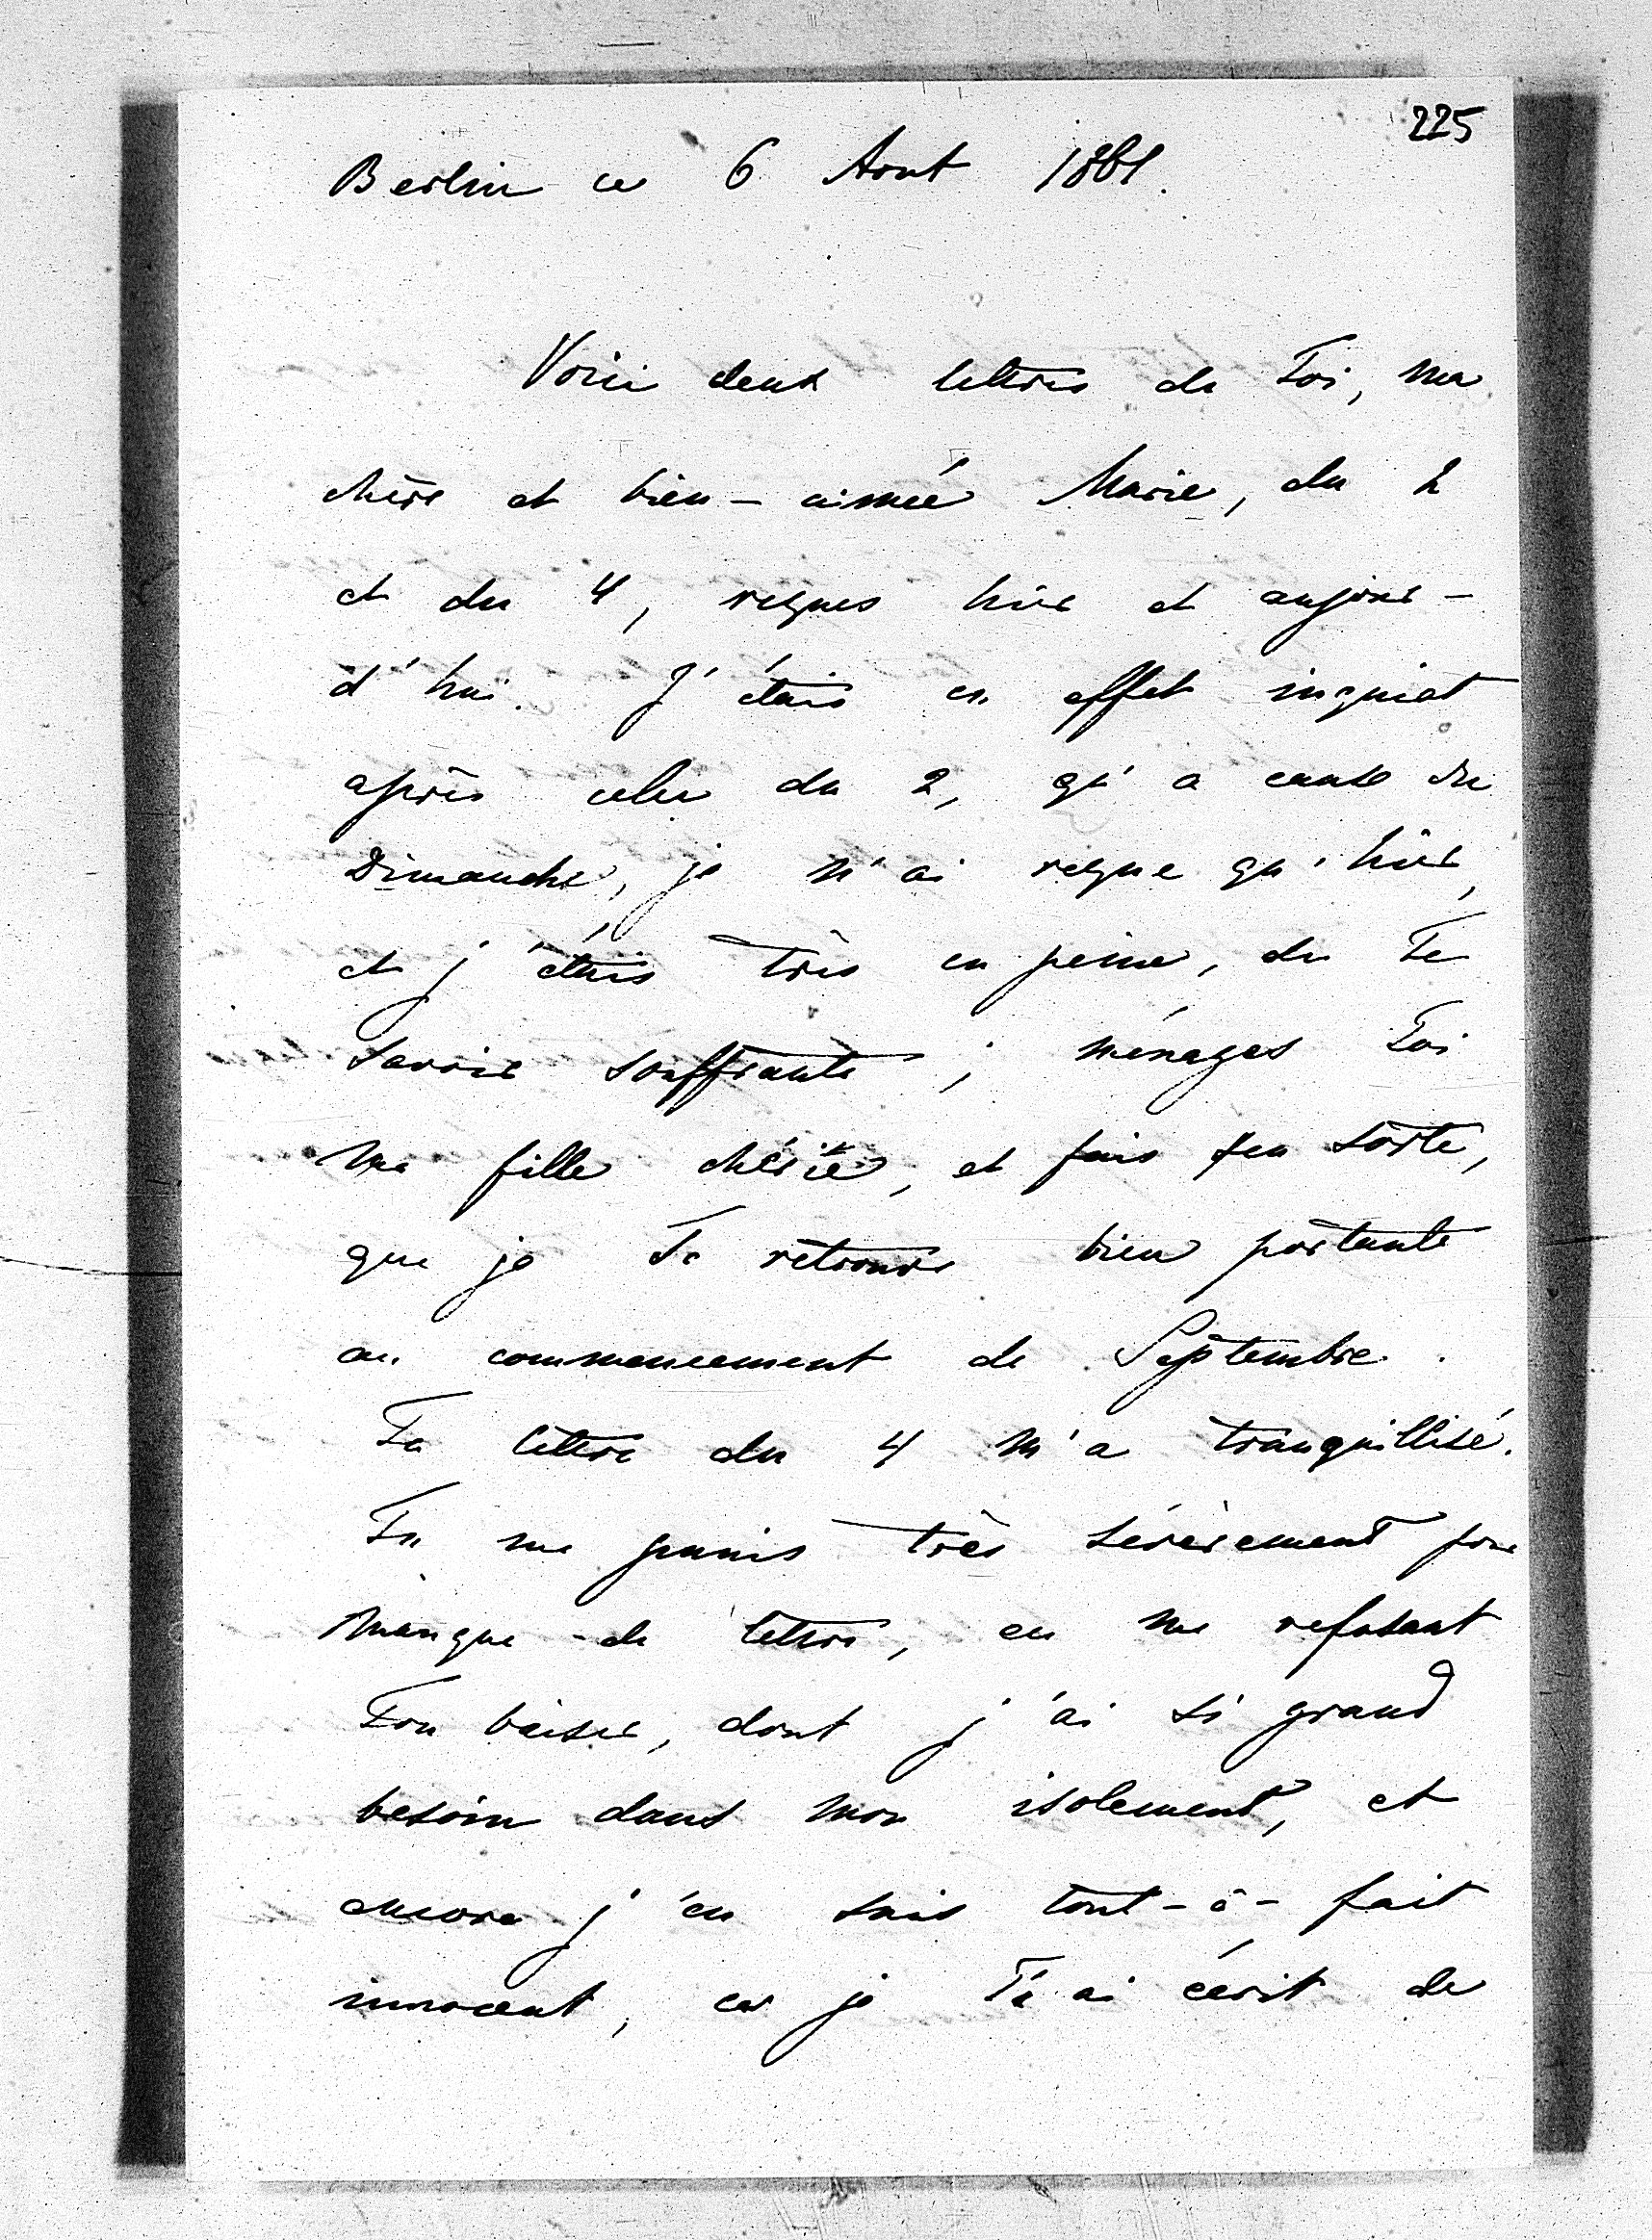 225
Berlin ce 6 Aout 1861.
Voici deux lettres de Toi, ma
chère et bien-aimée Marie, du 2
et du 4, reçues hier et aujour-
d'hui. J'étais en effet inquiet
après celle du 2, qu'a cause du
Dimanche, je n'ai reçue qu'hier,
et j'étais très en peine, de Te
savoir souffrante ; ménages Toi
ma fille chérie, et fais en sorte,
que je Te retrouve bien portante
au commencement de Septembre.
Ta lettre du 4 m'a tranquillisé.
Tu me punis très sévèrement pour
manque de lettre, en me refusant
Ton baiser, dont j'ai si grand
besoin dans mon isolement, et
encore j'en suis tout-à-fait
innocent, car je T'ai écrit de